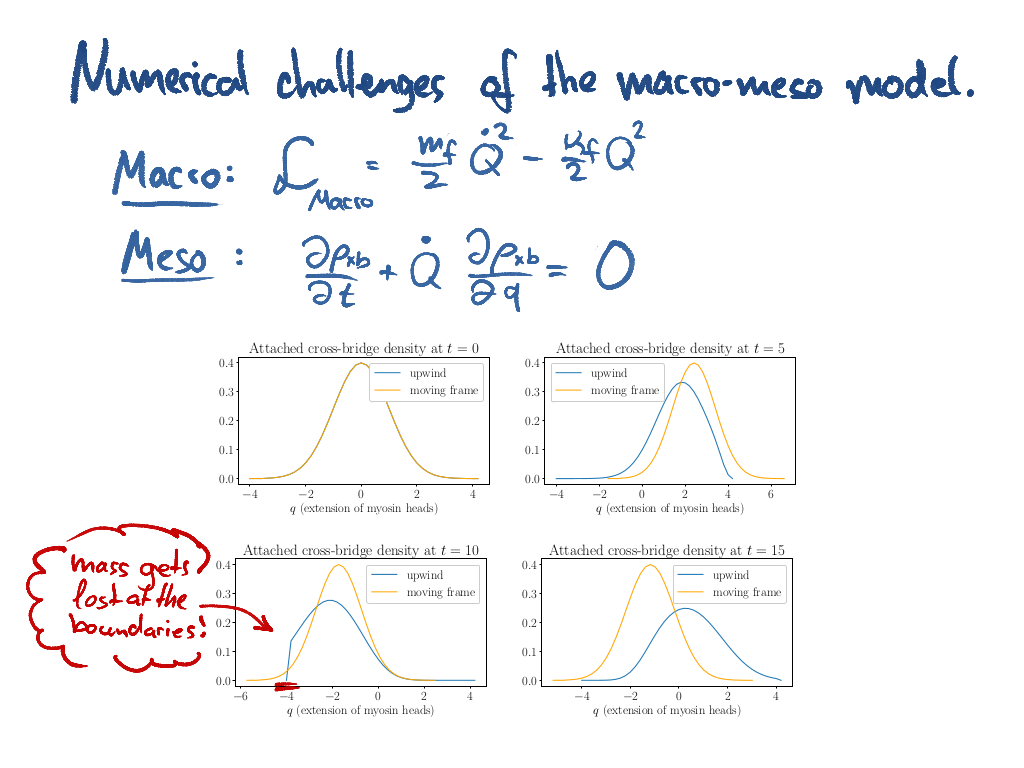 Numerical challenges of the macro-meso model.
Macro: ℒ_Macro = m_f/2 Q̇² − κ_f/2 Q²
Meso: ∂ρ_xb/∂t + Q̇ ∂ρ_xb/∂q = 0
Attached cross-bridge density at t = 0
0.4
0.3
0.2
0.1
0.0
upwind
moving frame
−4 −2 0 2 4
q (extension of myosin heads)
Attached cross-bridge density at t = 5
0.4
0.3
0.2
0.1
0.0
upwind
moving frame
−4 −2 0 2 4 6
q (extension of myosin heads)
mass gets
lost at the
boundaries!
Attached cross-bridge density at t = 10
0.4
0.3
0.2
0.1
0.0
upwind
moving frame
−6 −4 −2 0 2 4
q (extension of myosin heads)
Attached cross-bridge density at t = 15
0.4
0.3
0.2
0.1
0.0
upwind
moving frame
−4 −2 0 2 4
q (extension of myosin heads)